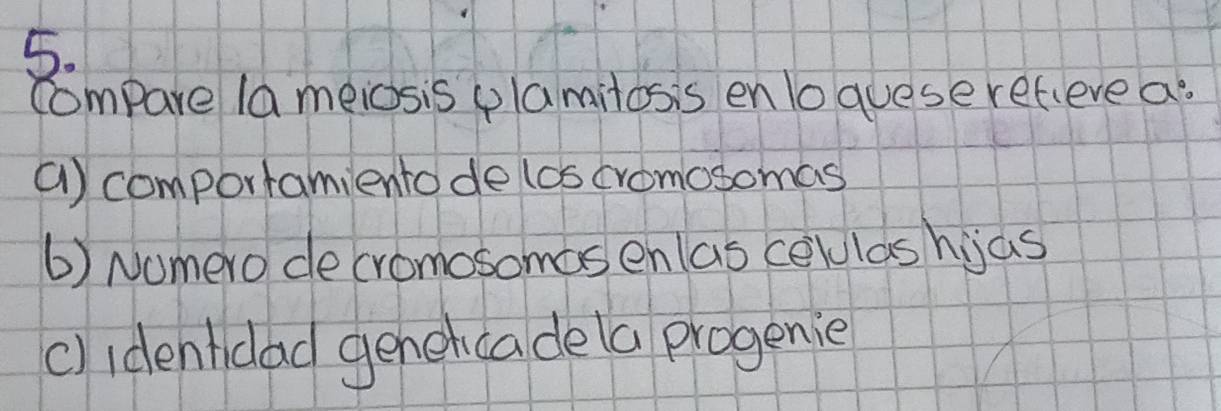 5.
Compare la meiosis y la mitosis en lo que se refiere a:
a) comportamiento de los cromosomas
b) Numero de cromosomas en las celulas hijas
c) identidad genetica de la progenie